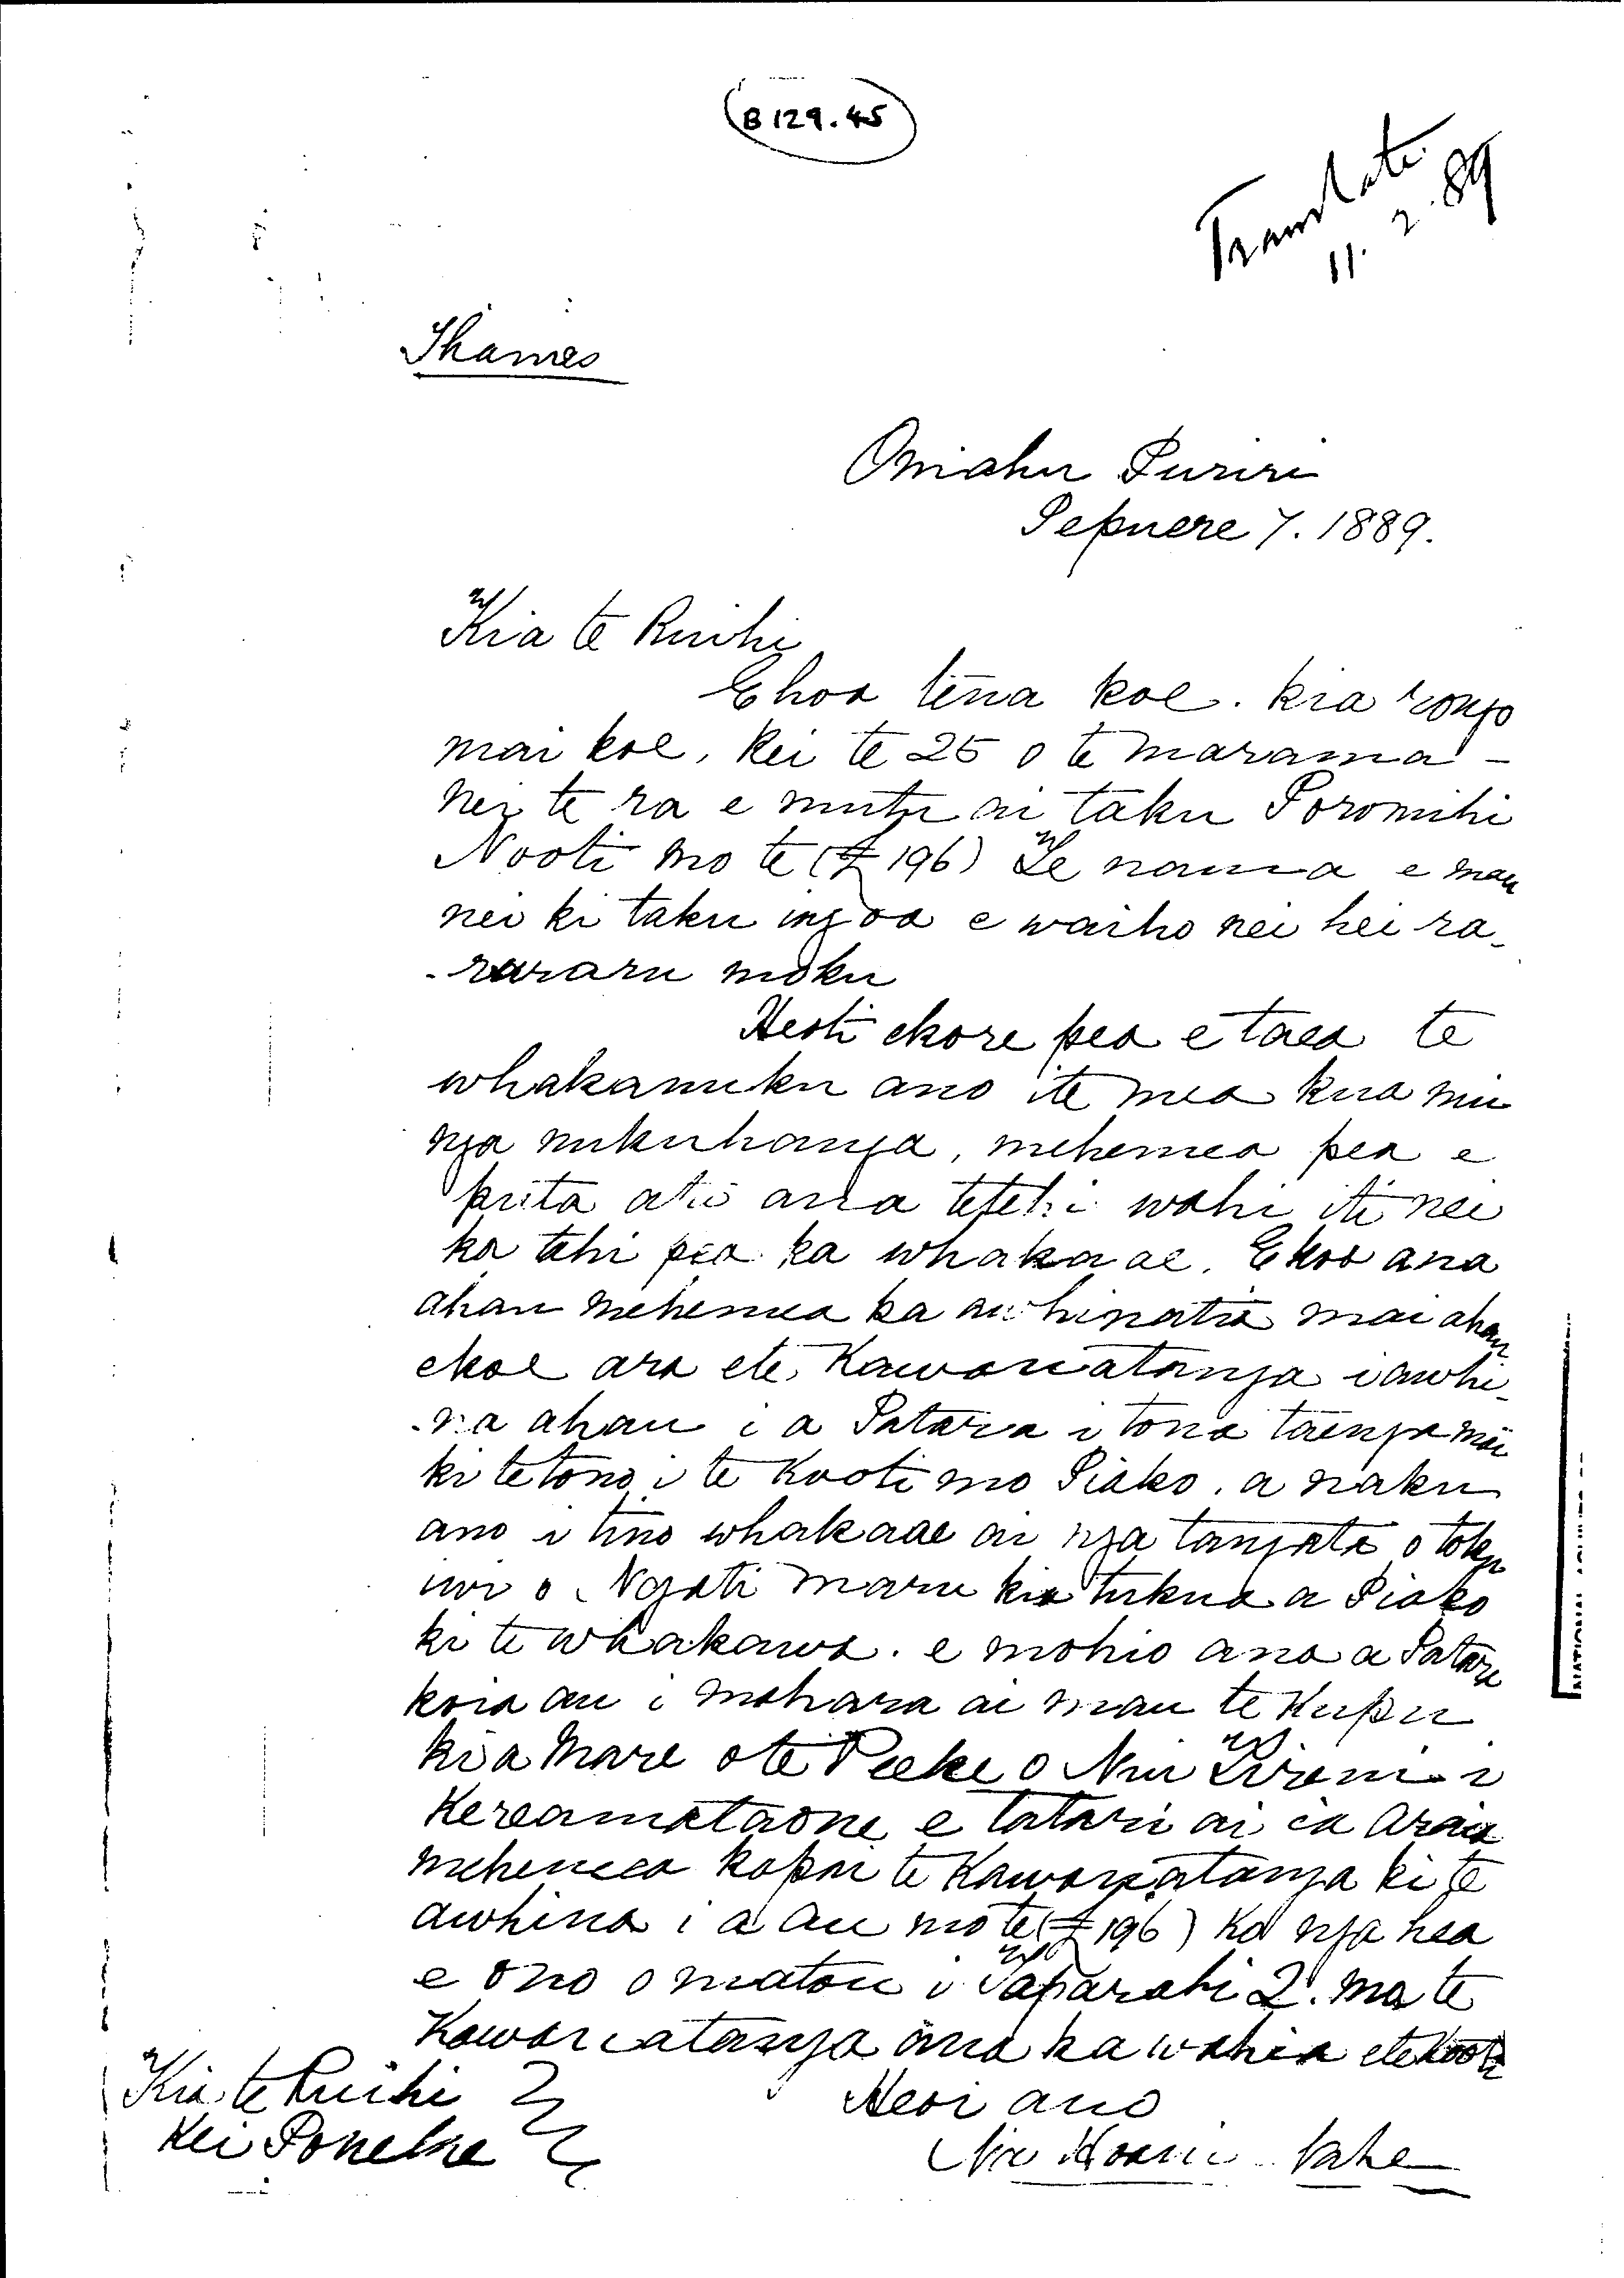 B 129.45
Translate
11. 2. 89
Thames
Omahu Puriri
Pepuere 7. 1889.
Kia te Ruihi
Ehoa tena koe. kia rongo
mai koe, kei te 25 o te marama
nei te ra e mutu ai taku Poromihi
Nooti mo te (£ 196) Te nama e mau
nei ki taku ingoa e waiho nei hei ra-
-raruraru moku
Heoti ekore pea e taea te
whakanuku ano i te mea kua
nga nukuhanga, mehemea pea e
puta atu ana tetehi wahi iti nei
ka tahi pea ka whakaae. E koa ana
ahau mehemea ka awhinatia mai ahau
ekoe ara ete Kawanatanga i awhi-
-na ahau i a Patara i tona taenga mai
ki te tono i te Kooti mo Piako. a naku
ano i tino whakaae ai nga tangata o toku
iwi o Ngati maru kia tukua a Piako
ki te whakawa. e mohio ana a Patara
koia au i mahara ai mau te Kupu
kia Mare o te Peeke o Niu Tireni i
Kereamataone e tatari ai ia
mehemea kapai te Kawanatanga ki te
awhina i a au mo te (£ 196) Ka nga hea
e ono o matou i Waparahi 2. ma te
Kawanatanga ana ka wahia ete Kooti
Heoi ano
Na Hoani Nahe
Kia te Ruihi
Kei Poneke